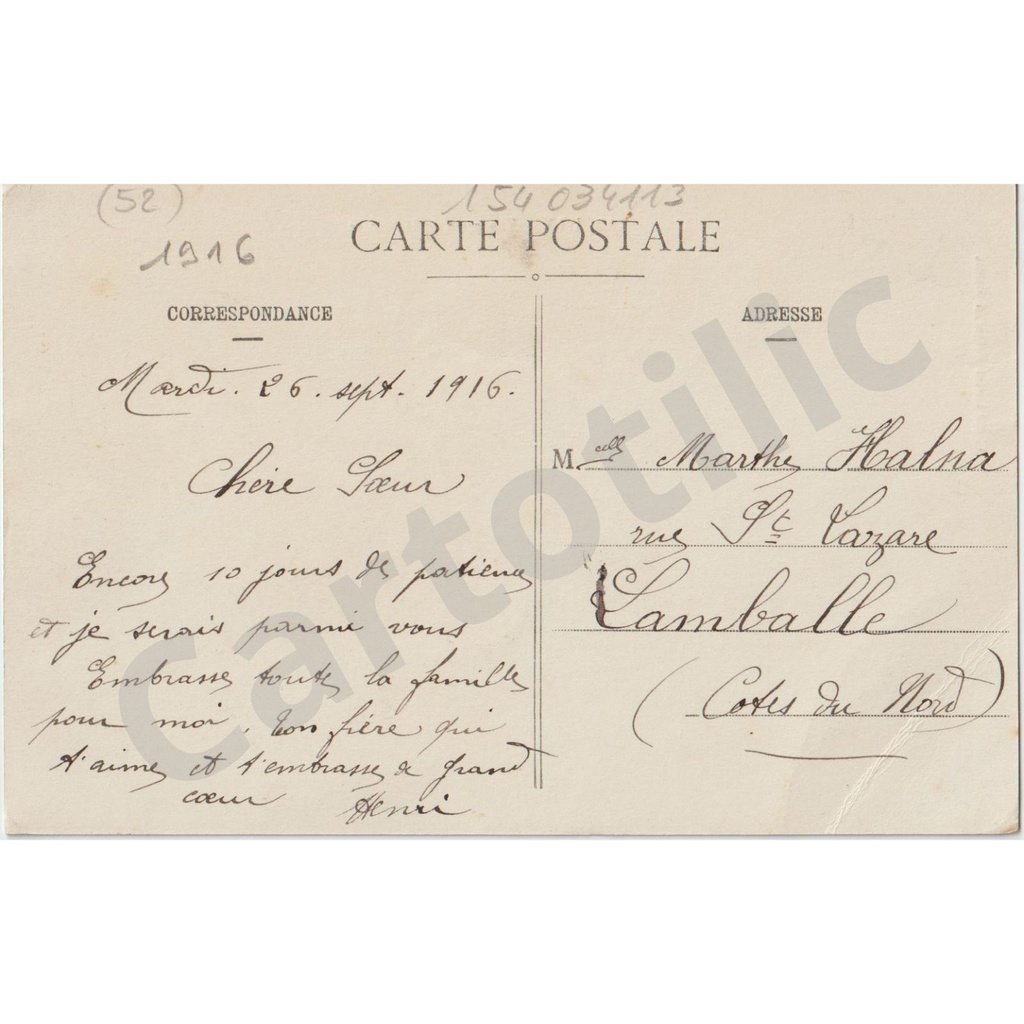 (52)
154 034113
1916
CARTE POSTALE
CORRESPONDANCE
Mardi. 26. sept. 1916.
Chère Sœur
Encore 10 jours de patience
et je serais parmi vous
Embrasse toute la famille
pour moi. Ton frère qui
t'aime et t'embrasse de grand
cœur Henri
ADRESSE
Melle Marthe Halna
rue St Lazare
Lamballe
(Cotes du Nord)
Cartotilic